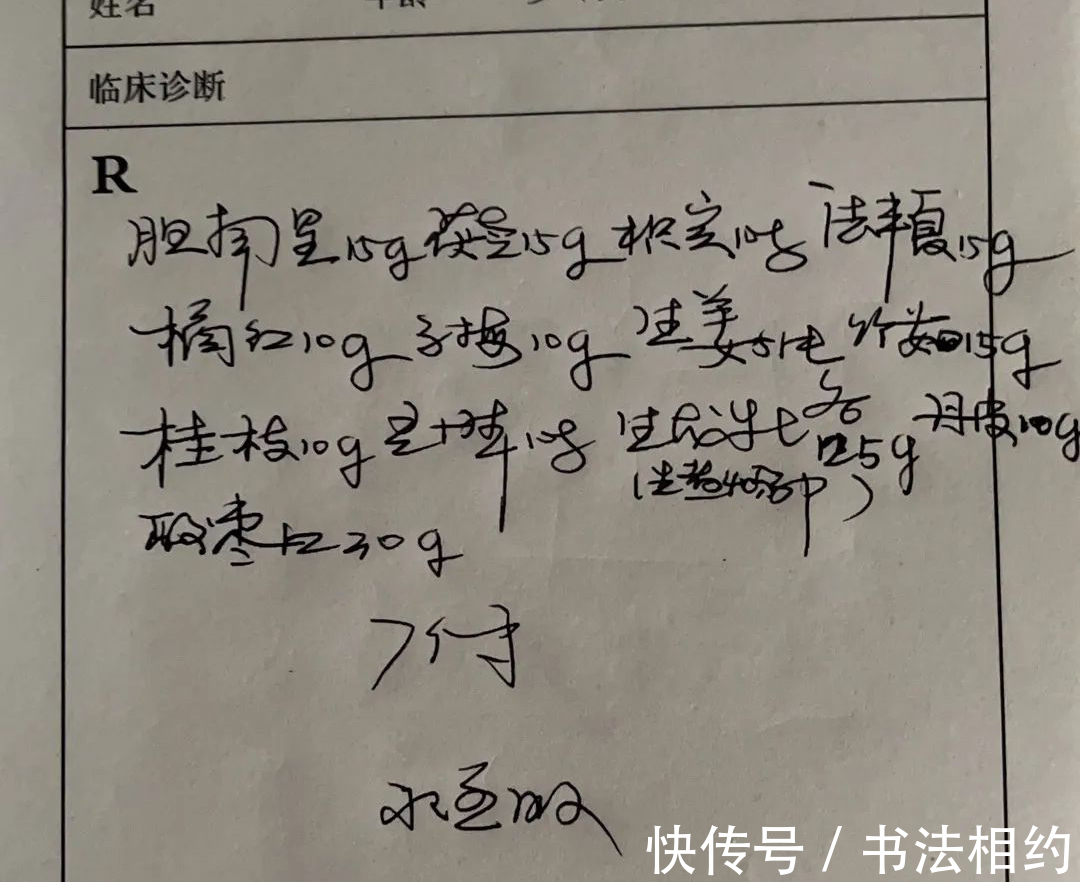 姓名 年龄
临床诊断
R
胆南星15g 茯苓15g 枳实10g 法半夏15g
橘红10g 10g 生姜5 竹茹15g
桂枝10g 10g 生龙牡各25g 丹皮10g
(先煎40分钟)
酸枣仁30g
7付
水煎服
快传号 / 书法相约